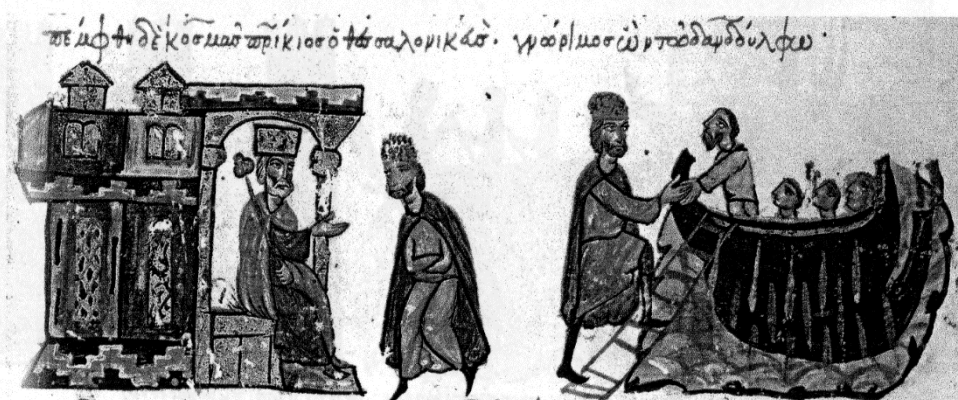 πέμφθη δὲ κοσμᾶς πρίκιος ὁ θεσσαλονικεύς· γνώριμος ὢν τῷ δανδούλφῳ·